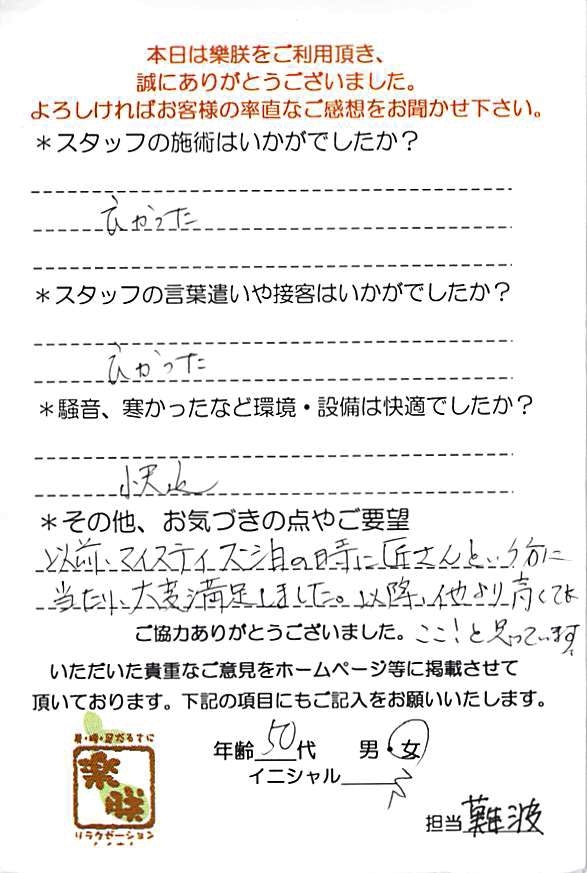 本日は樂朕をご利用頂き、
誠にありがとうございました。
よろしければお客様の率直なご感想をお聞かせ下さい。
＊スタッフの施術はいかがでしたか？
良かった
＊スタッフの言葉遣いや接客はいかがでしたか？
良かった
＊騒音、寒かったなど環境・設備は快適でしたか？
＊その他、お気づきの点やご要望
以前、マイステイズ泊の時に匠さんという方に
当たり、大変満足しました。以降、他より高くても
ここ！と思っています。
ご協力ありがとうございました。
いただいた貴重なご意見をホームページ等に掲載させて
頂いております。下記の項目にもご記入をお願いいたします。
年齢50代 男・女
イニシャル
肩・腰・足だるすに
樂朕
リラクゼーション
担当 難波